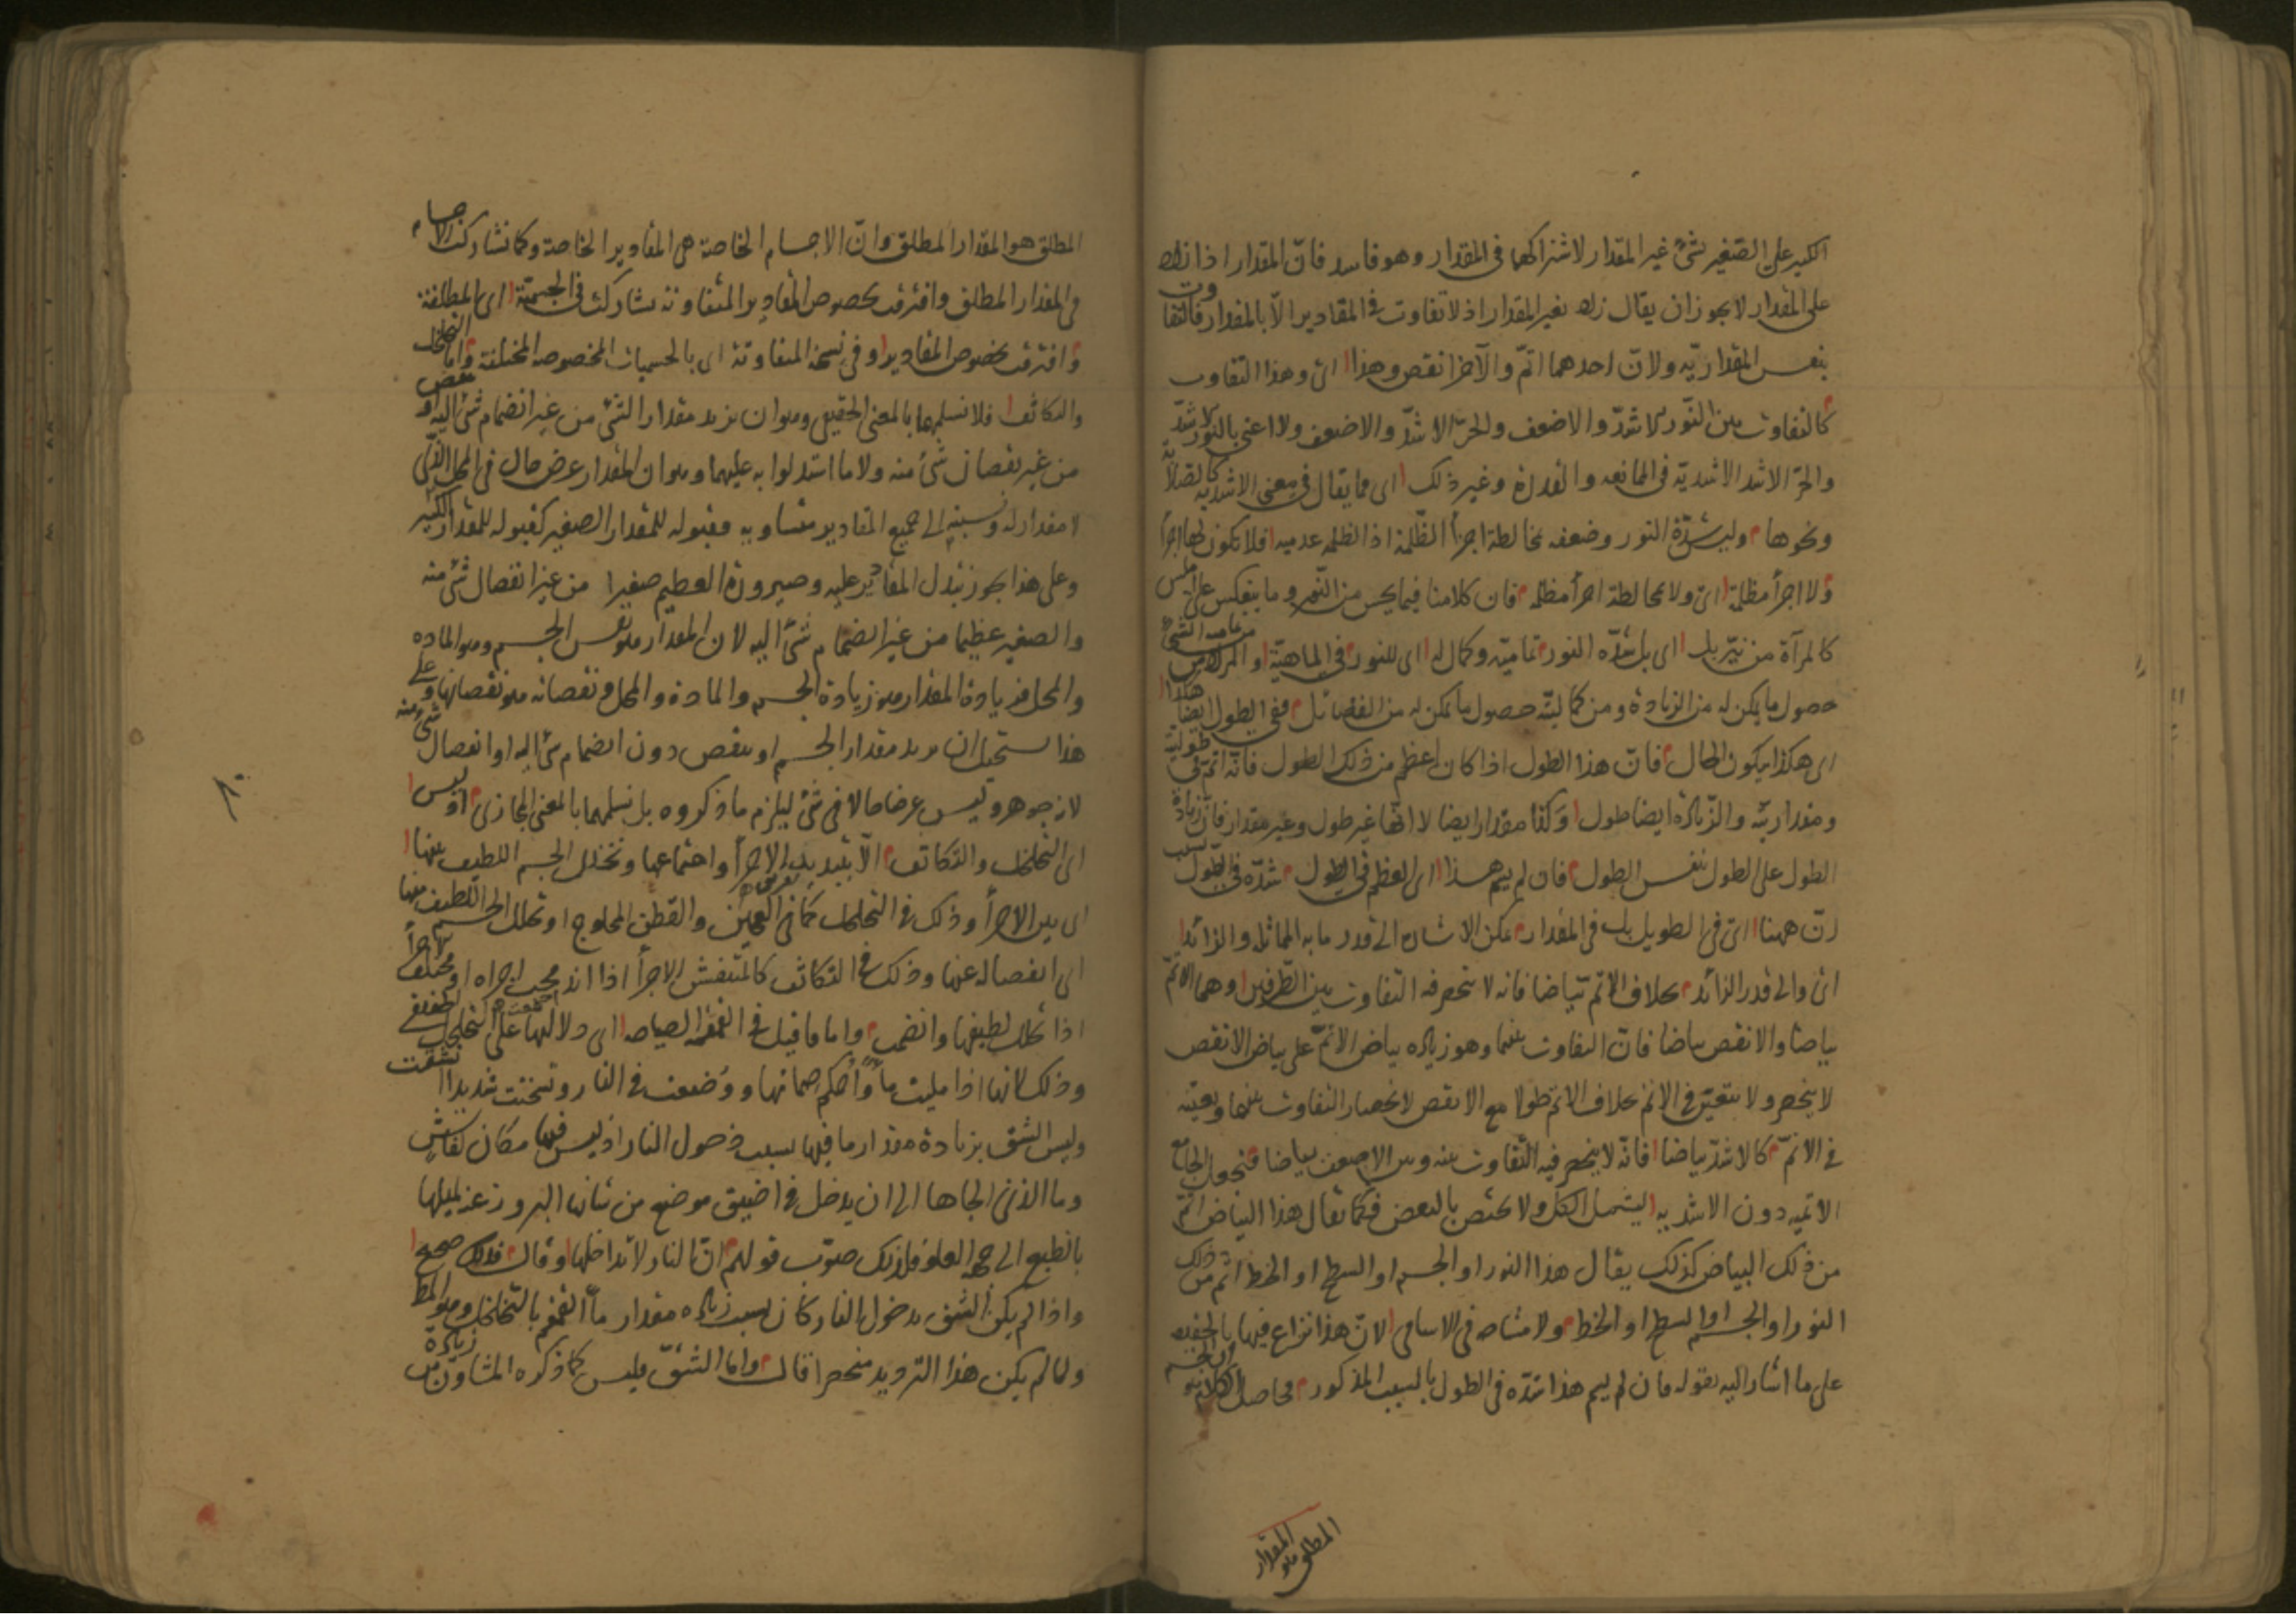 الكبير على الصغير بشئ غير المقدار لاشتراكهما في المقدار وهو فاسد فان المقدار اذا زاد
على المقدار لا يجوز ان يقال زاد بغير المقدار اذ لا تفاوت في المقادير الا بالمقدار فالتفاوت
بنفس المقدارية ولان احدهما اتم والآخر انقص وهذا اى وهذا التفاوت
كالتفاوت بين النور الاشد والاضعف والحر الاشد والاضعف ولا اعنى بالنور الاشد
والحر الاشد الاشدية في الممانعه والقدرة وغير ذلك اى مما يقال في معنى الاشدية كالصلابة
ونحوها وليس شدة النور وضعفه مخالطة اجزأ الظلمة اذ الظلمه عدميه فلا تكون لها اجزأ
ولا اجزأ مظلمة اى ولا مخالطة اجزأ مظلمه فان كلامنا فيما يحس من النور وما ينعكس على املس
كالمرآة من نير بل اى بل شدة النور تماميته وكمال له اى للنور في الماهية والمراد من تماميه الشئ
حصول ما يمكن له من الزيادة ومن كماليته حصول ما يمكن له من الفضائل ففي الطول ايضا هكذا
اى هكذا يكون الحال فان هذا الطول اذا كان اعظم من ذلك الطول فانه اتم في طوليته
ومقداريته والزيادة ايضا طول وكذا مقدار ايضا لا انها غير طول وغير مقدار فان زيادة
الطول على الطول بنفس الطول فان لم يسم هذا اى العظم في الطول شدة في الطول بسبب
ان ههنا اى في الطويل بل في المقدار يمكن الاشارة الى قدر ما به المماثل والزائد
اى والى قدر الزائد بخلاف الاتم بياضا فانه لا ينحصر فيه التفاوت بين الطرفين وهما الاتم
بياضا والانقص بياضا فان التفاوت بينهما وهو زيادة بياض الاتم على بياض الانقص
لا ينحصر ولا يتعين في الاتم بخلاف الاتم طولا مع الانقص لانحصار التفاوت بينهما وتعينه
في الاتم كالاشد بياضا فانه لا ينحصر فيه التفاوت بينه وبين الاضعف بياضا فنجعل الجامع
الاتميه دون الاشديه ليشمل الكل ولا يختص بالبعض فكما يقال هذا البياض اتم
من ذلك البياض كذلك يقال هذا النور او الجسم او السطح او الخط اتم من ذلك
النور او الجسم او السطح او الخط ولا مشاحه في الاسامى لان هذا نزاع فيها بالحقيقه
على ما اشار اليه بقوله فان لم يسم هذا شدة في الطول بالسبب المذكور فحاصل الكلام ان الجسم هو
المطلق هو المقدار
المطلق هو المقدار المطلق وان الاجسام الخاصة هى المقادير الخاصة وكما تشاركت الاجسام
في المقدار المطلق وافترقت بخصوص المقادير المتفاوتة تشاركت في الجسمية اى المطلقة
وافترقت بخصوص المقادير او في نسخة المتفاوتة اى بالجسميات المخصوصة المختلفة واما التخلخل
والتكاثف فلا نسلمها بالمعنى الحقيقى وهو ان يزيد مقدار الشئ من غير انضمام شئ اليه او ينقص
من غير نقصان شئ منه ولا ما استدلوا به عليهما وهو ان المقدار عرض حال في المحل الذى
لا مقدار له ونسبته الى جميع المقادير متساويه فقبوله للمقدار الصغير كقبوله للمقدار الكبير
وعلى هذا يجوز تبدل المقادير عليه وصيرورة العظيم صغيرا من غير انفصال شئ منه
والصغير عظيما من غير انضمام شئ اليه لان المقدار هو نفس الجسم وهو الماده
والمحل فزيادة المقدار هو زيادة الجسم والمادة والمحل ونقصانه هو نقصانها وعلى
هذا يستحيل ان يزيد مقدار الجسم او ينقص دون انضمام شئ اليه او انفصال شئ منه
لانه جوهر وليس عرضا حالا في شئ ليلزم ما ذكروه بل نسلمهما بالمعنى المجازى اذ ليس
اى التخلخل والتكاثف الا بتبديد الاجزأ واجتماعها وتخلل الجسم اللطيف بينها
اى بين الاجزأ وذلك في التخلخل كما في العجين والقطن المحلوج او تحلل الجسم اللطيف منها
اى انفصاله عنها وذلك في التكاثف كالمنتفش الاجزأ اذا اندمجت اجزاه او مختلف الاجزأ
اذا تحلل لطيفها وانضمت واما ما قيل في القمقمة الصياحه اى دلالتها على التخلخل
وذلك لانها اذا مليت مأ واحكم صمامها ووضعت في النار وتسخنت شديدا انشقت
وليس الشق بزيادة مقدار ما فيها بسبب دخول النار اذ ليس فيها مكان لفاش
وما الذى الجاها الى ان يدخل في اضيق موضع من شانها البروز عنه لميلها
بالطبع الى جهة العلو فلذلك صوب قولهم ان النار لا تداخلها وقال فذلك صحيح
واذا لم يكن الشق بدخول النار كان بسبب زيادة مقدار مأ القمقمه بالتخلخل وهو المط
ولما لم يكن هذا الترديد منحصرا قال واما الشق فليس كما ذكره المشاؤن من زيادة
٨٠